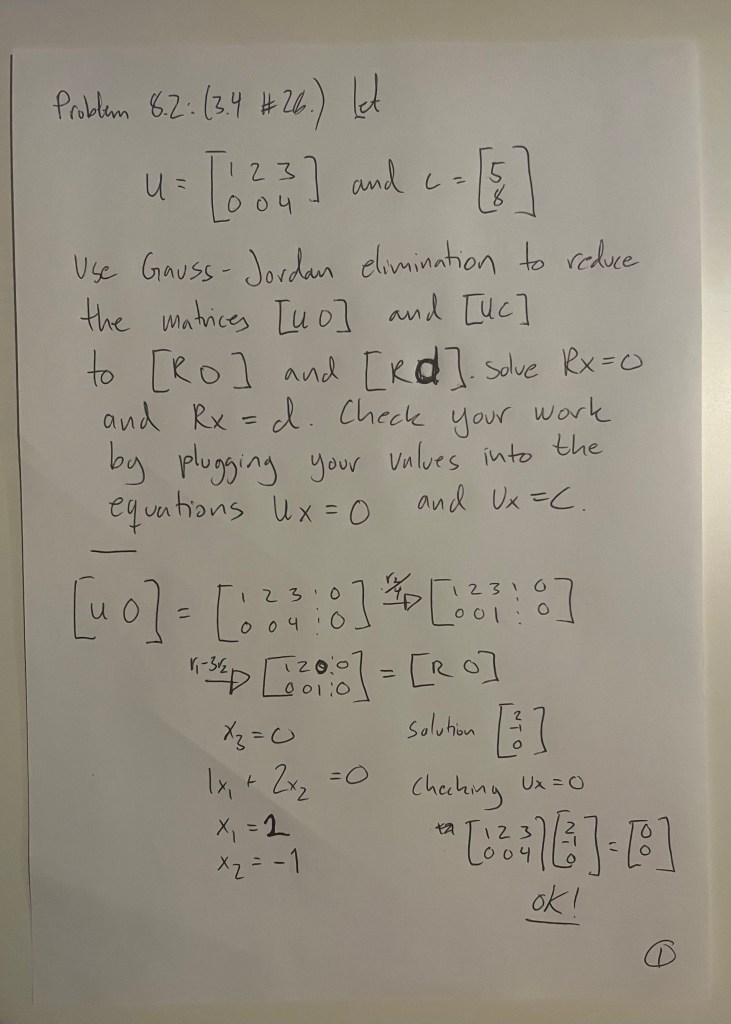 Problem 8.2: (3.4 #26.) Let
U = [1 2 3 0 0 4] and c = [5 8]
Use Gauss-Jordan elimination to reduce
the matrices [U 0] and [U C]
to [R 0] and [R d]. Solve Rx=0
and Rx = d. Check your work
by plugging your values into the
equations Ux = 0 and Ux = C.
[U 0] = [1 2 3 : 0 0 0 4 : 0] r2/4 ⇒ [1 2 3 : 0 0 0 1 : 0]
r1-3r2 ⇒ [1 2 0 : 0 0 0 1 : 0] = [R 0]
x3 = 0
solution [2 -1 0]
1x1 + 2x2 = 0
Checking Ux=0
x1 = 2
[1 2 3 0 0 4] [2 -1 0] = [0 0]
x2 = -1
OK!
1